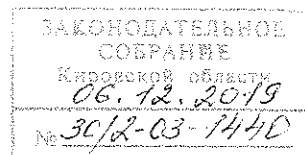 ЗАКОНОДАТЕЛЬНОЕ
СОБРАНИЕ
Кировской области
06.12.2019
№ 30/2-03-1440